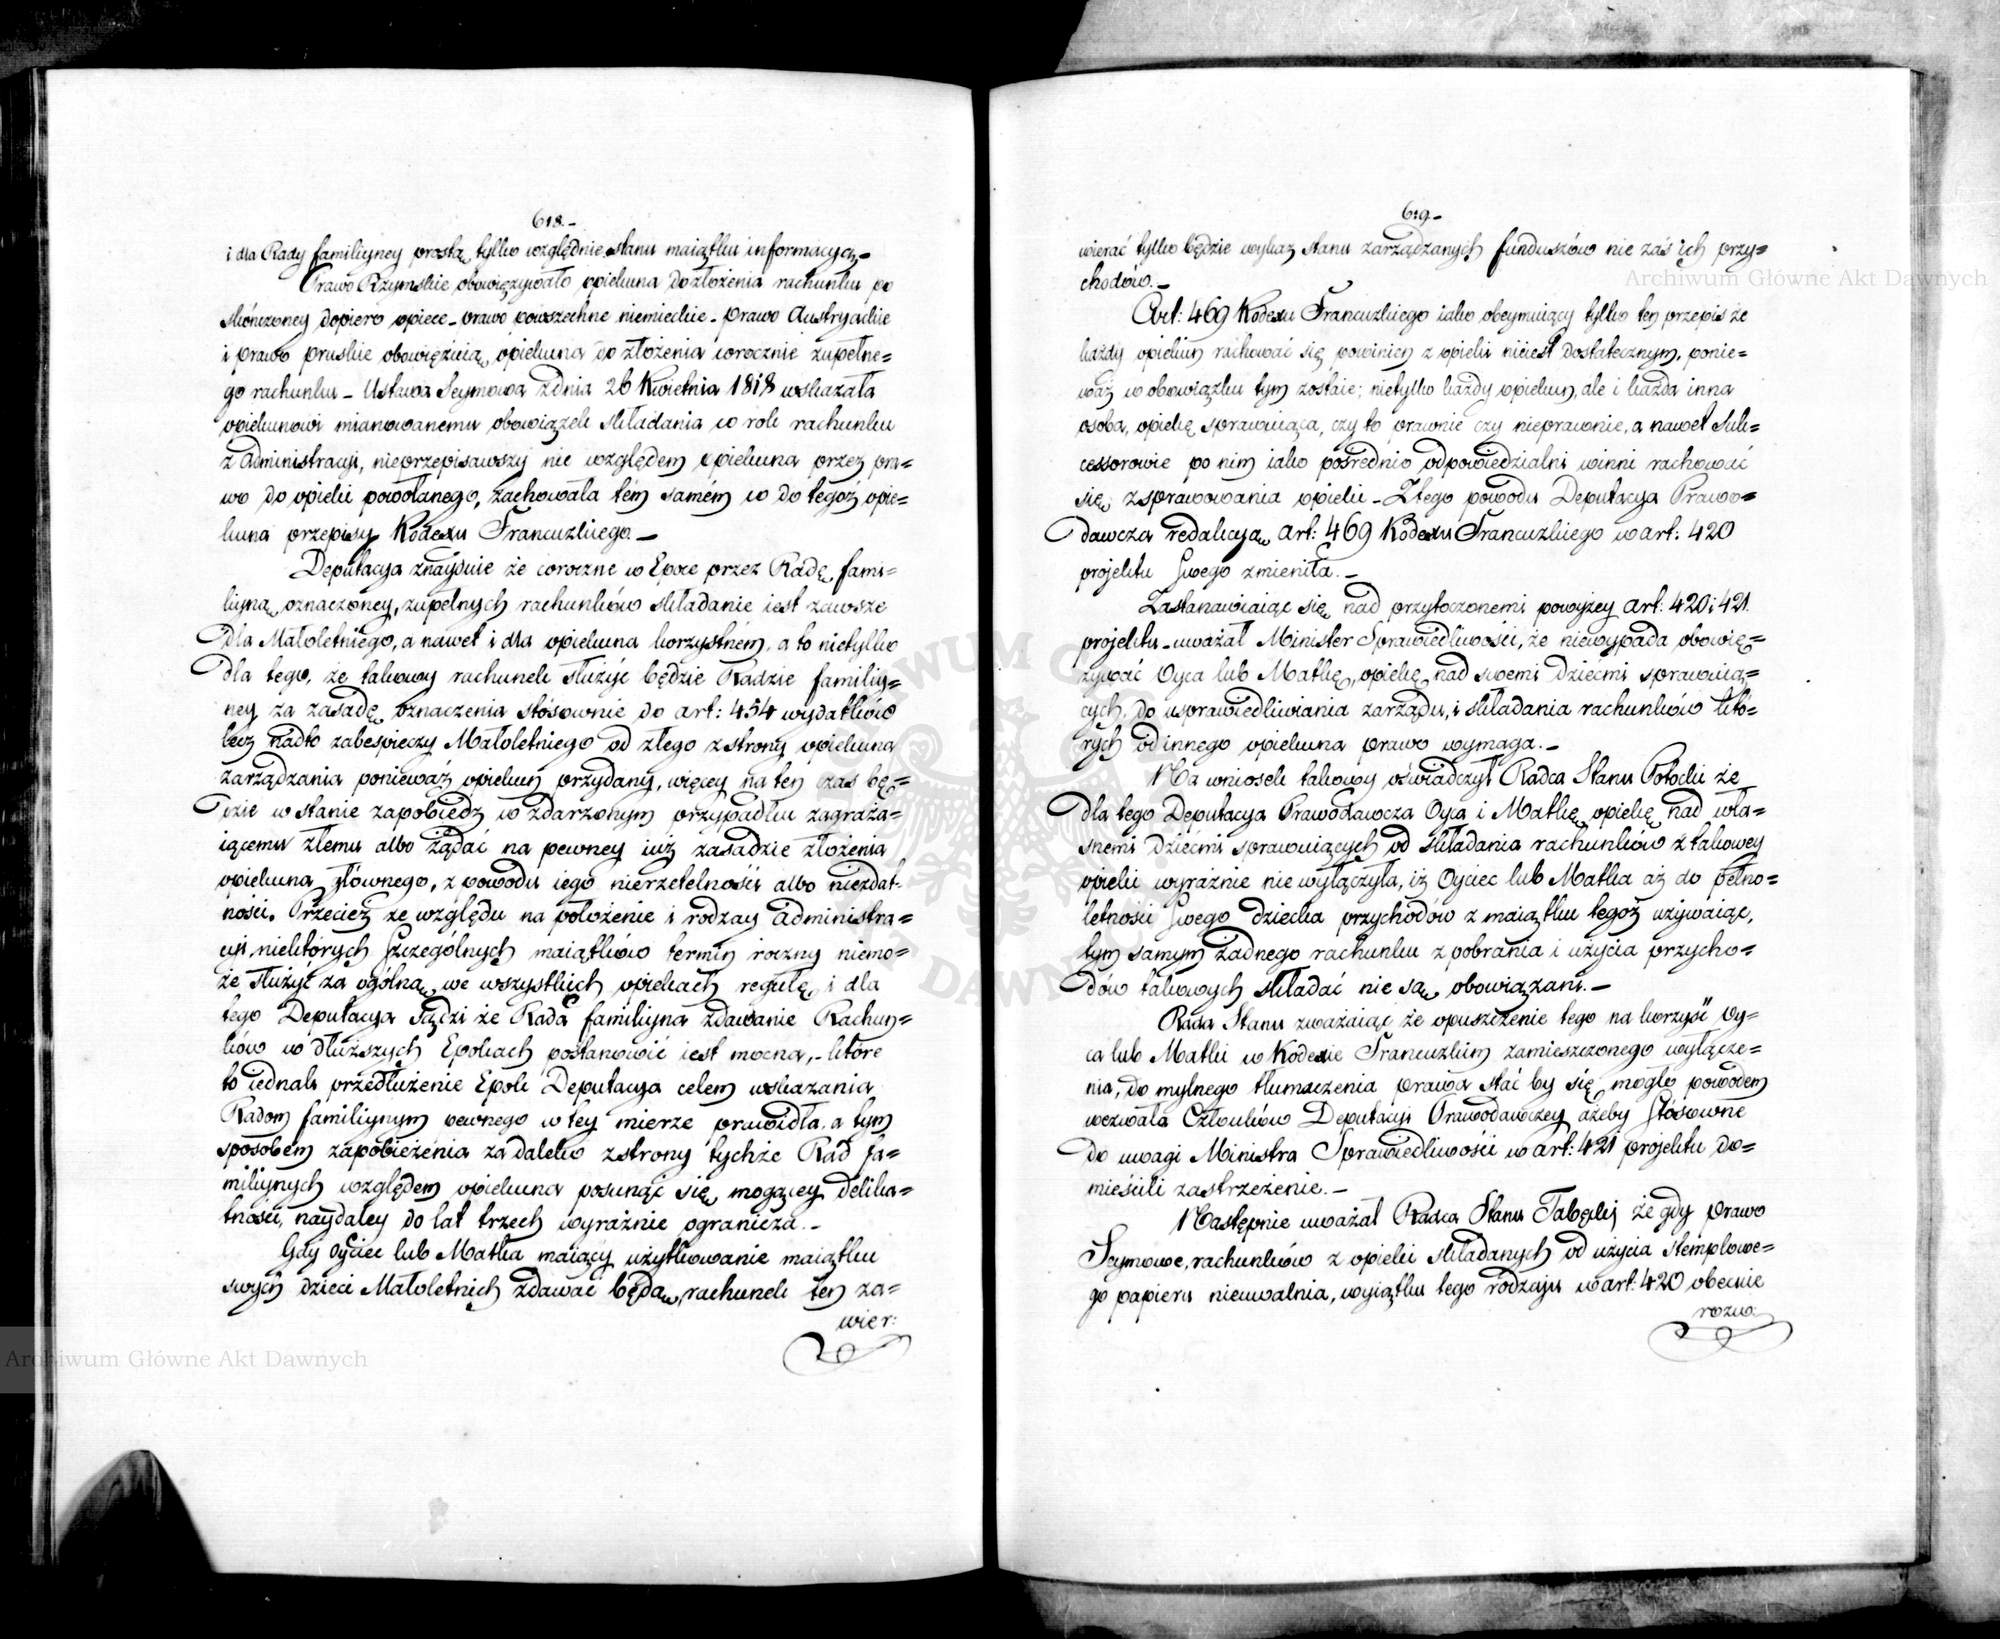 618.-
i dla Rady familiyney prostą tylko względnie stanu maiątku informacyą.-
Prawo Rzymskie obowięzywało opiekuna do złożenia rachunku po
skończoney dopiero opiece - prawo powszechne niemieckie - prawo Austryackie
i prawo pruskie obowięzuią opiekuna do złożenia corocznie zupełne=
go rachunku - Ustawa Seymowa z dnia 26 Kwietnia 1818 wskazała
opiekunowi mianowanemu obowiązek składania co rok rachunku
z administracyi, nieprzepisawszy nic względem opiekuna przez pra=
wo do opieki powołanego, zachowała tém samém co do tegoż opie=
kuna przepisy Kodexu Francuzkiego.-
Deputacya znayduie że coroczne w Epoce przez Radę fami=
liyną oznaczoney, zupełnych rachunków składanie iest zawsze
dla Małoletniego, a nawet i dla opiekuna korzystném, a to nietylko
dla tego, że takowy rachunek służyć będzie Radzie familiy=
ney za zasadę oznaczenia stósownie do art: 454 wydatków
lecz nadto zabespieczy Małoletniego od złego z strony opiekuna
zarządzania ponieważ opiekun przydany, więcey na ten czas bę=
dzie w stanie zapobiedz w zdarzonym przypadku zagraża=
iącemu złemu albo żądać na pewney iuż zasadzie złożenia
opiekuna głównego, z powodu iego nierzetelności albo niezdat-
ności. Przecież ze względu na położenie i rodzay administra=
cyi niektórych szczególnych maiątków termin roczny niemo=
że służyć za ogólną we wszystkich opiekach regułę i dla
tego Deputacya sądzi że Rada familiyna zdawanie Rachun=
ków w dłuższych Epokach postanowić iest mocna,- które
to iednak przedłużenie Epok Deputacya celem wskazania
Radom familiynym pewnego w tey mierze prawidła, a tym
sposobem zapobieżenia za daleko z strony tychże Rad fa=
miliynych względem opiekuna posunąć się mogącey delika=
tności, naydaley do lat trzech wyraźnie ogranicza.-
Gdy Oyciec lub Matka maiący użytkowanie maiątku
swych dzieci Małoletnich zdawać będą rachunek ten za=
wier:
619.-
wierać tylko będzie wykaz stanu zarządzanych funduszów nie zaś ich przy=
chodów.-
Art: 469 Kodexu Francuzkiego iako obeymuiący tylko ten przepis że
każdy opiekun rachować się powinien z opieki nieiest dostatecznym, ponie=
waż w obowiązku tym zostaie; nietylko każdy opiekun, ale i każda inna
osoba, opiekę sprawuiąca, czy to prawnie czy nieprawnie, a nawet Suk=
cessorowie po nim iako pośrednio odpowiedzialni winni rachować
się z sprawowania opieki - Z tego powodu Deputacya Prawo=
dawcza redakcyą art: 469 Kodexu Francuzkiego w art: 420
projektu swego zmieniła.-
Zastanawiaiąc się nad przytoczonemi powyżey art: 420 i 421.
projektu - uważał Minister Sprawiedliwości, że niewypada obowię=
zywać Oyca lub Matkę, opiekę nad swemi dziećmi sprawuią=
cych, do usprawiedliwiania zarządu, i składania rachunków któ=
rych od innego opiekuna prawo wymaga.-
Na wniosek takowy oświadczył Radca Stanu Potocki że
dla tego Deputacya Prawodawcza Oyca i Matkę opiekę nad wła=
snemi dziećmi sprawuiących od składania rachunków z takowey
opieki wyraźnie nie wyłączyła, iż Oyciec lub Matka aż do pełno=
letności swego dziecka przychodów z maiątku tegoż używaiąc,
tym samym żadnego rachunku z pobrania i użycia przycho=
dów takowych składać nie są obowiązani.-
Rada Stanu zważaiąc że opuszczenie tego na korzyść Oy=
ca lub Matki w Kodexie Francuzkim zamieszczonego wyłącze=
nia, do mylnego tłumaczenia prawa stać by się mogło powodem
wezwała Członków Deputacyi Prawodawczey ażeby stósownie
do uwagi Ministra Sprawiedliwości w art: 421 projektu do=
mieścili zastrzeżenie.-
Następnie uważał Radca Stanu Tabęcki że gdy Prawo
Seymowe, rachunków z opieki składanych od użycia stemplowe=
go papieru nieuwalnia, wyiątku tego rodzaju w art: 420 obecnie
rozw:
Archiwum Główne Akt Dawnych
Archiwum Główne Akt Dawnych